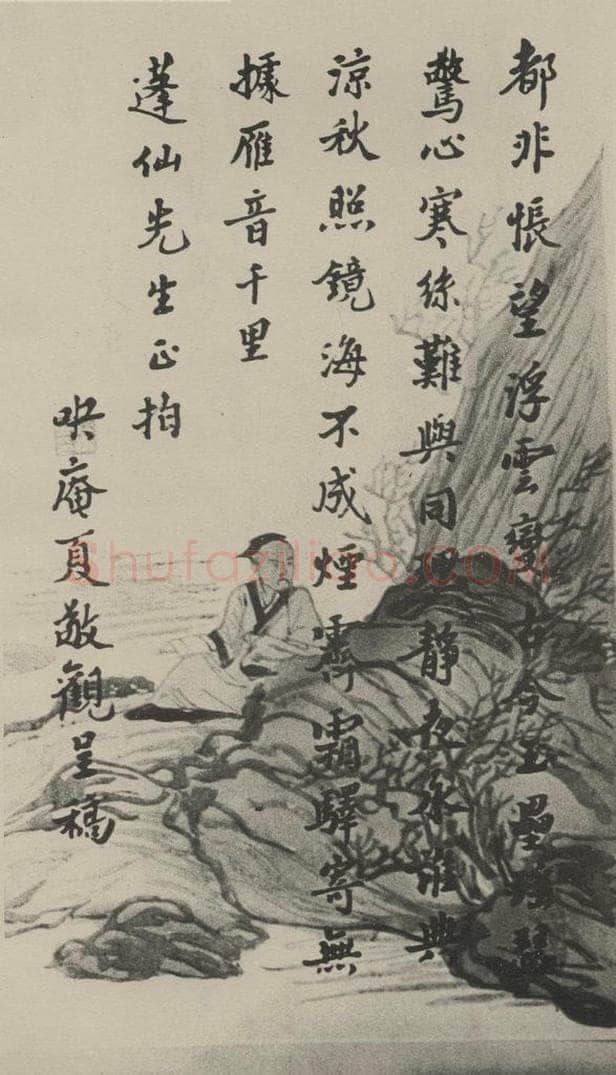 都非悵望浮雲變古今玉壘
驚心寒絲難與同 靜夜永誰與
涼秋照鏡海不成煙霽霜驛寄無
據雁音千里
蓬仙先生正拍
吷庵夏敬觀呈稿
Shufaziliao.COM